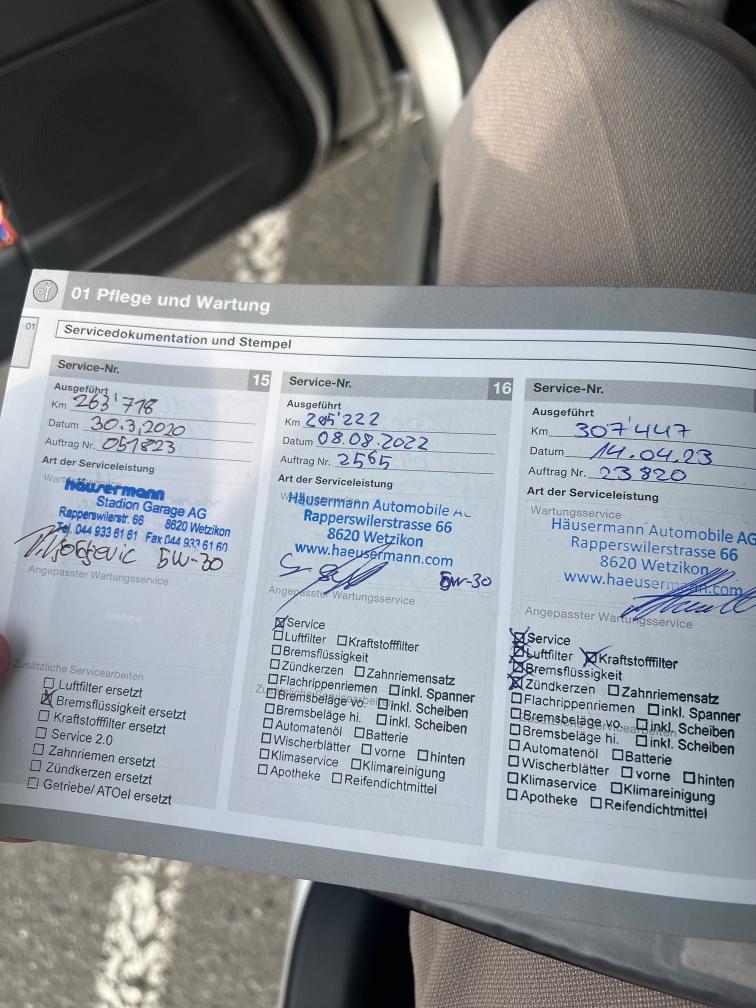 01 Pflege und Wartung
01
Servicedokumentation und Stempel
Service-Nr. 15
Ausgeführt
Km 263'718
Datum 30.3.2020
Auftrag Nr. 051823
Art der Serviceleistung
häusermann
Stadion Garage AG
Rapperswilerstr. 66 8620 Wetzikon
Tel. 044 933 61 61 Fax 044 933 61 60
5W-30
Angepasster Wartungsservice
Stempel
Zusätzliche Servicearbeiten
Luftfilter ersetzt
Bremsflüssigkeit ersetzt
Kraftstofffilter ersetzt
Service 2.0
Zahnriemen ersetzt
Zündkerzen ersetzt
Getriebe/ ATOel ersetzt
Service-Nr. 16
Ausgeführt
Km 222
Datum 08.08.2022
Auftrag Nr. 2565
Art der Serviceleistung
Häusermann Automobile
Rapperswilerstrasse 66
8620 Wetzikon
www.haeusermann.com
5W-30
Angepasster Wartungsservice
Service
Luftfilter Kraftstofffilter
Bremsflüssigkeit
Zündkerzen Zahnriemensatz
Flachrippenriemen inkl. Spanner
Bremsbeläge vo. inkl. Scheiben
Bremsbeläge hi. inkl. Scheiben
Automatenöl Batterie
Wischerblätter vorne hinten
Klimaservice Klimareinigung
Apotheke Reifendichtmittel
Service-Nr.
Ausgeführt
Km 307'447
Datum 14.04.23
Auftrag Nr. 23820
Art der Serviceleistung
Wartungsservice
Häusermann Automobile AG
Rapperswilerstrasse 66
8620 Wetzikon
www.haeusermann.com
Angepasster Wartungsservice
Service
Luftfilter Kraftstofffilter
Bremsflüssigkeit
Zündkerzen Zahnriemensatz
Flachrippenriemen inkl. Spanner
Bremsbeläge vo. inkl. Scheiben
Bremsbeläge hi. inkl. Scheiben
Automatenöl Batterie
Wischerblätter vorne hinten
Klimaservice Klimareinigung
Apotheke Reifendichtmittel